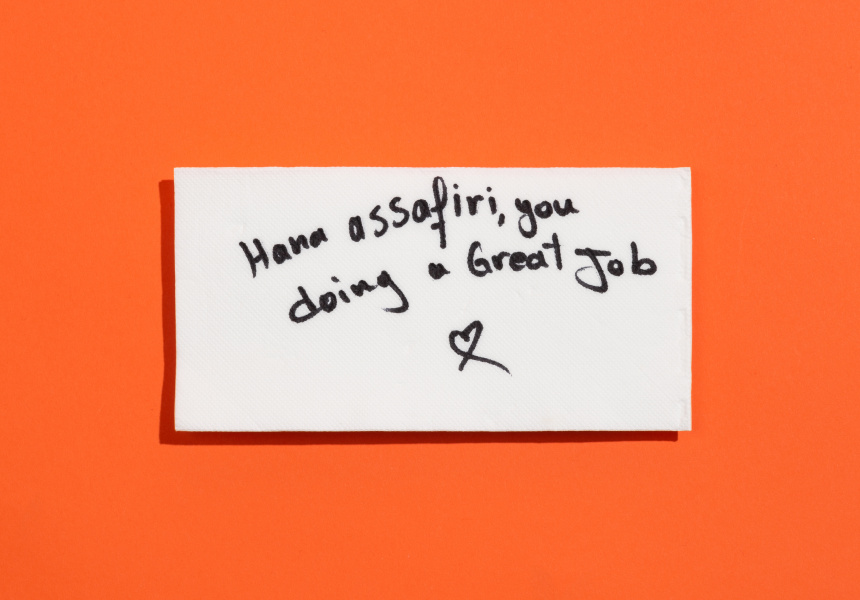 Hana assafiri, you
doing a Great Job